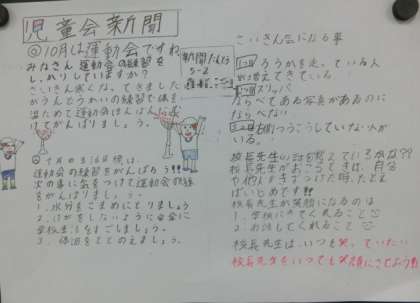 児童会新聞
◎10月は運動会ですね
みなさん運動会の練習を
しっかりしていますか?
さいきん寒くな、てきました
がうんどうかいの練習で体を
温ためて運動会本ばんに向
けてがんばりましょう。
新聞
5-2
◎
運動会の練習をがんばろう!!
次の事に気をつけて運動会練習
をがんばりましょう。
1.水分をこまめにとりましょう
2.けがをしないように安全に
学校生活をすごしましょう。
3.体調をととのえましょう。
さいきん気になる事
1つ目 ろうかを走っている人
が増えてきている
2つ目 スリッパ
ならべてある写真があるのに
ならべない
3つ目
いる。
校長先生の話を覚えているかな??
校長先生がおこるときは、自分
や他人をきずつけた時、たとえ
ばいじめです!!
校長先生が笑顔になるのは
1.学校にきてくれること
2.お話してくれること
校長先生は、いつも笑っていたい
校長先生をいつでも笑顔にさせよう!!